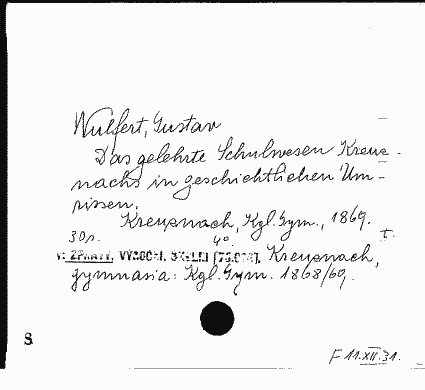 Wulfert, Gustav
Das gelehrte Schulwesen Kreuz-
nachs in geschichtlichen Um-
rissen.
Kreuznach, Kgl. Gym., 1869.
30 p. 4º. t.
V: ZPRÁVY, VÝROČNÍ, ŠKOLNÍ Kreuznach,
gymnasia: Kgl. Gym. 1868/69.
8
F 11.XII.31.